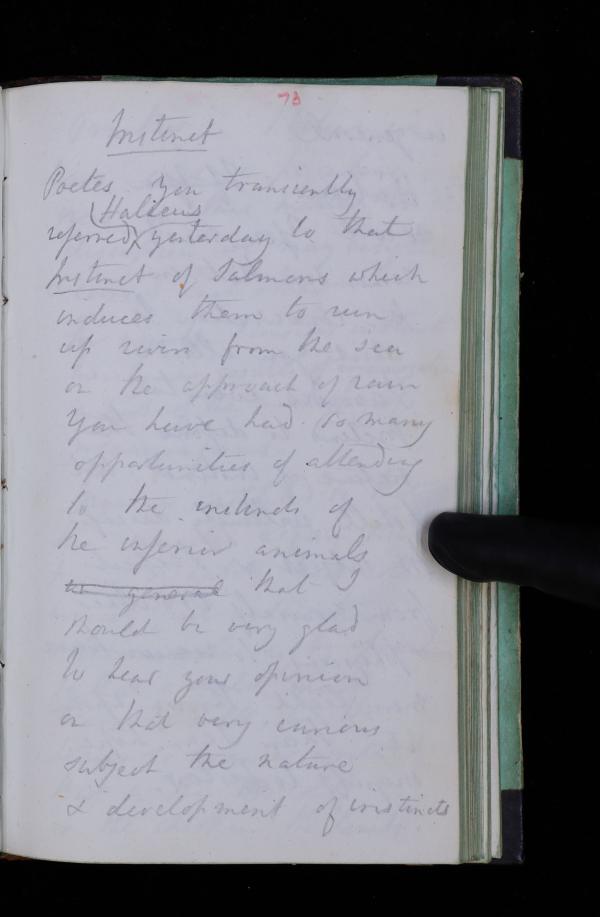 73
Instinct
Poetes, you transiently
Halieus
referred yesterday to that
Instinct of Salmons which
induces them to run
up rivers from the sea
on the approach of rain
You have had so many
opportunities of attending
to the instincts of
the inferior animals
in general that I
should be very glad
to hear your opinion
on that very curious
subject the nature
& development of instincts